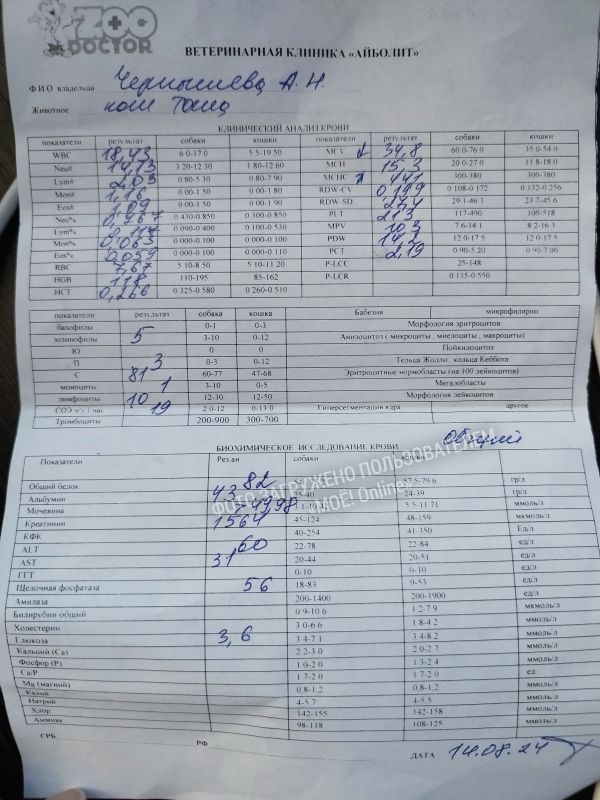 ZOO DOCTOR
ВЕТЕРИНАРНАЯ КЛИНИКА «АЙБОЛИТ»
ФИО владельца Чернышева А. Н.
Животное кот
КЛИНИЧЕСКИЙ АНАЛИЗ КРОВИ
показатели результат собаки кошки показатели результат собаки кошки
WBC 18,43 6 0-17 0 5.5-19.50 MCV 34,8 60 0-76 0 35 0-54 0
Neu# 14,13 3 20-12 30 1 80-12 60 MCH 15,3 20 0-27 0 11 8-18 0
Lym# 2,05 0 80-5 30 0 80-7 90 MCHC 441 300-380 300-380
Mon# 1,16 0 00-1 50 0 00-1 80 RDW-CV 0,199 0 108-0 172 0 132-0 256
Eos# 1,09 0 00-1 50 0 00-1 90 RDW-SD 27,4 29 1-46 3 23 7-45 6
Neu% 0,767 0 430-0 850 0 300-0 850 PLT 213 117-490 100-518
Lym% 0 090-0 400 0 100-0 530 MPV 10,3 7 6-14 1 8 2-16 3
Mon% 0,063 0 000-0 100 0 000-0 100 PDW 14,2 12 0-17 5 12 0-17 5
Eos% 0,059 0 000-0 100 0 000-0 110 PCT 2,19 0 90-5 20 0 90-7 00
RBC 7,67 5 10-8 50 5 10-11 20 P-LCC 25-148
HGB 118 110-195 85-162 P-LCR 0 115-0 550
HCT 0,266 0 325-0 580 0 260-0 510
показатели результат собака кошка Бабезия микрофилярии
базофилы 0-1 0-3 Морфология эритроцитов
эозинофилы 5 3-10 0-12 Анизоцитоз ( микроциты , миелоциты , макроциты)
Ю 0 0 Пойкилоцитоз
П 3 0-3 0-12 Тельца Жолли кольца Кеббота
С 81 60-77 47-68 Эритроцитные нормобласты (на 100 лейкоцитов)
моноциты 1 3-10 0-5 Мегалобласты
лимфоциты 10 12-30 12-50 Морфология лейкоцитов
СОЭ ч/з 1 час 19 2 0-12 0-13 0 Гиперсегментация ядра другое
Тромбоциты 200-900 300-700
БИОХИМИЧЕСКОЕ ИССЛЕДОВАНИЕ КРОВИ Общий
Показатели Рез ан собаки кошки
ФОТО ЗАГРУЖЕНО ПОЛЬЗОВАТЕЛЕМ
МОЁ! Online
Общий белок 82 57 5-79 6 гр/л
Альбумин 43 25-40 24-39 гр/л
Мочевина 49,98 5 5-11 71 ммоль/л
Креатинин 1564 45-124 48-159 мкмоль/л
КФК 40-254 41-350 Ед/л
ALT 60 22-78 22-84 ед/л
AST 31 20-44 20-51 ед/л
ГГТ 0-10 0-10 ед/л
Щелочная фосфатаза 56 18-83 9-53 ед/л
Амилаза 200-1400 200-1900 ед/л
Билирубин общий 0 9-10 6 1 2-7.9 мкмоль/л
Холестерин 3 0-6.6 1 8-4 2 ммоль/л
Глюкоза 3,6 3 4-7 1 3 4-8.2 ммоль/л
Кальций (Са) 2 2-3 0 2 0-2 7 ммоль/л
Фосфор (Р) 1 0-2 0 1 3-2 4 ммоль/л
Са/Р 1 7-2 0 1 7-2 0 ед
Mg (магний) 0,8-1,2 0,8-1,2 ммоль/л
Калий 4-5.7 4-5.5 ммоль/л
Натрий 142-155 142-158 ммоль/л
Хлор 98-118 108-125 ммоль/л
Аммиак ммоль/л
СРБ РФ ДАТА 14.08.24